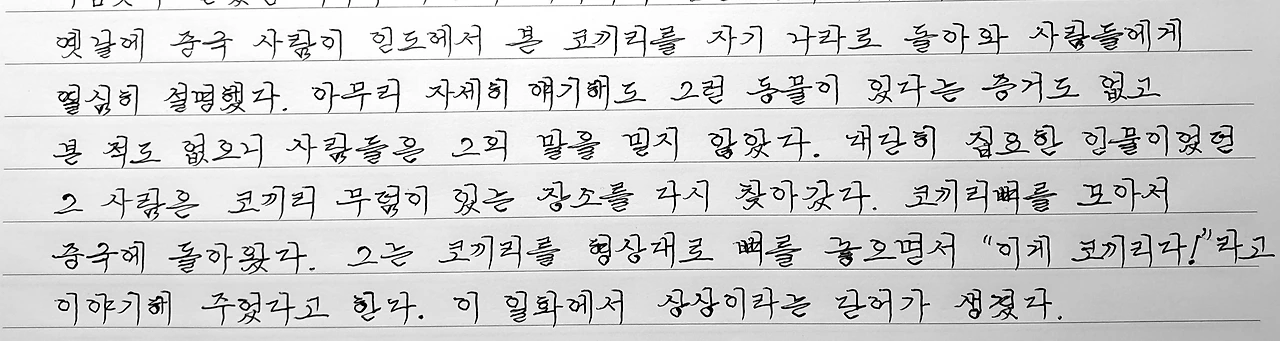 옛날에 중국 사람이 인도에서 본 코끼리를 자기 나라로 돌아와 사람들에게
열심히 설명했다. 아무리 자세히 얘기해도 그런 동물이 있다는 증거도 없고
본 적도 없으니 사람들은 그의 말을 믿지 않았다. 대단히 집요한 인물이었던
그 사람은 코끼리 무덤이 있는 장소를 다시 찾아갔다. 코끼리뼈를 모아서
중국에 돌아왔다. 그는 코끼리를 형상대로 뼈를 놓으면서 "이게 코끼리다!"라고
이야기해 주었다고 한다. 이 일화에서 상상이라는 단어가 생겼다.